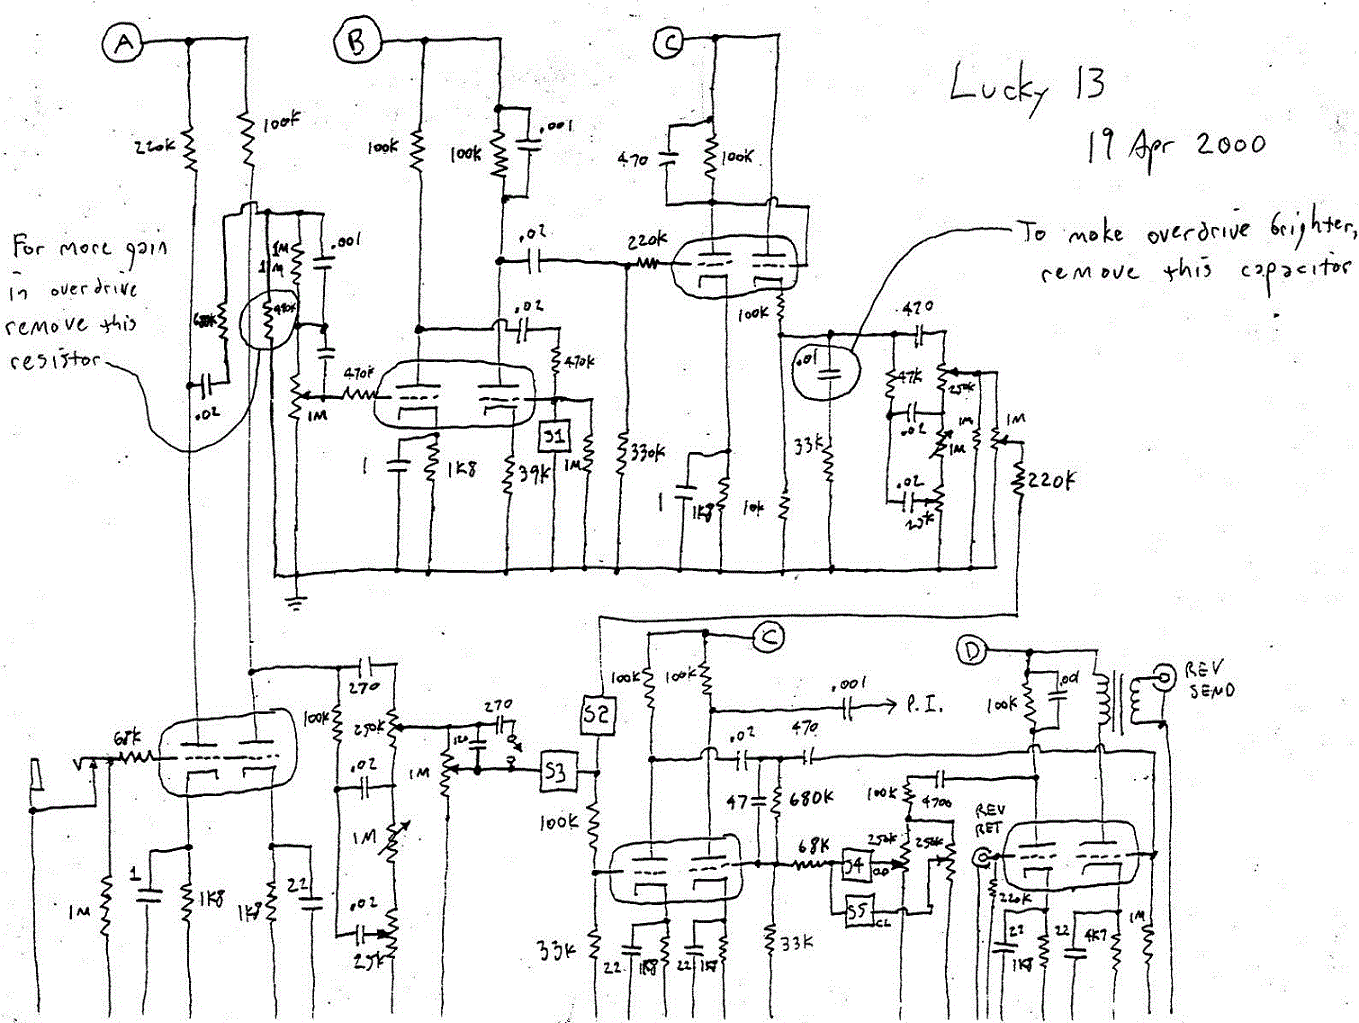 A
B
C
Lucky 13
19 Apr 2000
220K
100K
100K
100K
.001
470
100K
For more gain
in overdrive
remove this
resistor
To make overdrive brighter,
remove this capacitor
1M
.001
680K
470K
.02
220K
.02
.02
470K
1M
470K
100K
.01
.470
47K
250K
.02
1M
1M
1M
.02
25K
S1
1
1K8
39K
1M
330K
1
1K8
10K
33K
220K
C
D
REV
SEND
270
100K
250K
270
120
S2
S3
100K
100K
.001
P.I.
.02
470
100K
68K
.02
1M
1M
47
680K
100K
4700
REV
RET
100K
68K
S4
OD
250K
250K
S5
CL
220K
1M
1
1K8
1K8
22
.02
25K
33K
22
1K8
22
1K8
33K
1K8
22
4K7
1M